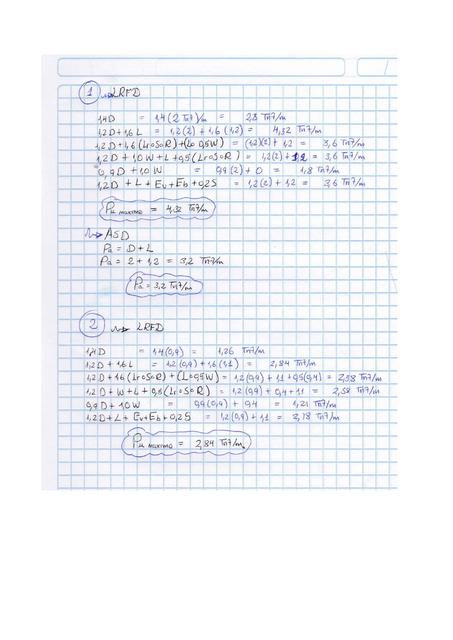 1 LRFD
1,4D = 1,4(2 Tn)/m = 2,8 Tn/m
1,2D + 1,6L = 1,2(2) + 1,6(1,2) = 4,32 Tn/m
1,2D + 1,6(LroSoR) + (Lo 0,5W) = (1,2)(2) + 1,2 = 3,6 Tn/m
1,2D + 1,0W + L + 0,5(LroSoR) = 1,2(2) + 1,2 = 3,6 Tn/m
0,9D + 1,0W = 0,9(2) + 0 = 1,8 Tn/m
1,2D + L + Ev + Eh + 0,2S = 1,2(2) + 1,2 = 3,6 Tn/m
Pu maximo = 4,32 Tn/m
ASD
Pa = D + L
Pa = 2 + 1,2 = 3,2 Tn/m
Pa = 3,2 Tn/m
2 LRFD
1,4D = 1,4(0,9) = 1,26 Tn/m
1,2D + 1,6L = 1,2(0,9) + 1,6(1,1) = 2,84 Tn/m
1,2D + 1,6(LroSoR) + (Lo0,5W) = 1,2(0,9) + 1,1 + 0,5(0,4) = 2,38 Tn/m
1,2D + W + L + 0,5(LroSoR) = 1,2(0,9) + 0,4 + 1,1 = 2,58 Tn/m
0,9D + 1,0W = 0,9(0,9) + 0,4 = 1,21 Tn/m
1,2D + L + Ev + Eh + 0,2S = 1,2(0,9) + 1,1 = 2,18 Tn/m
Pu maximo = 2,84 Tn/m